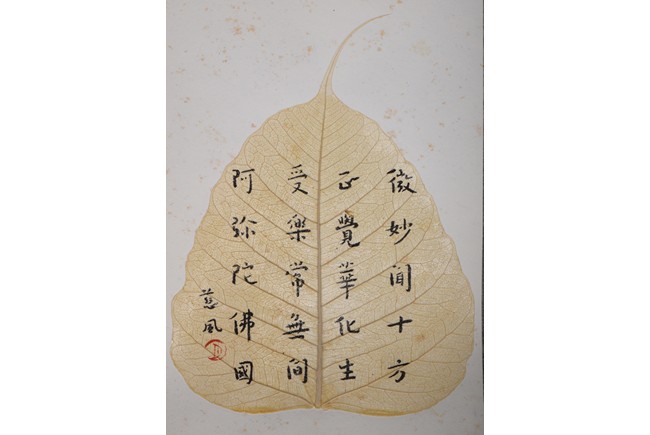 微妙聞十方
正覺華化生
受樂常無間
阿弥陀佛國
慈風